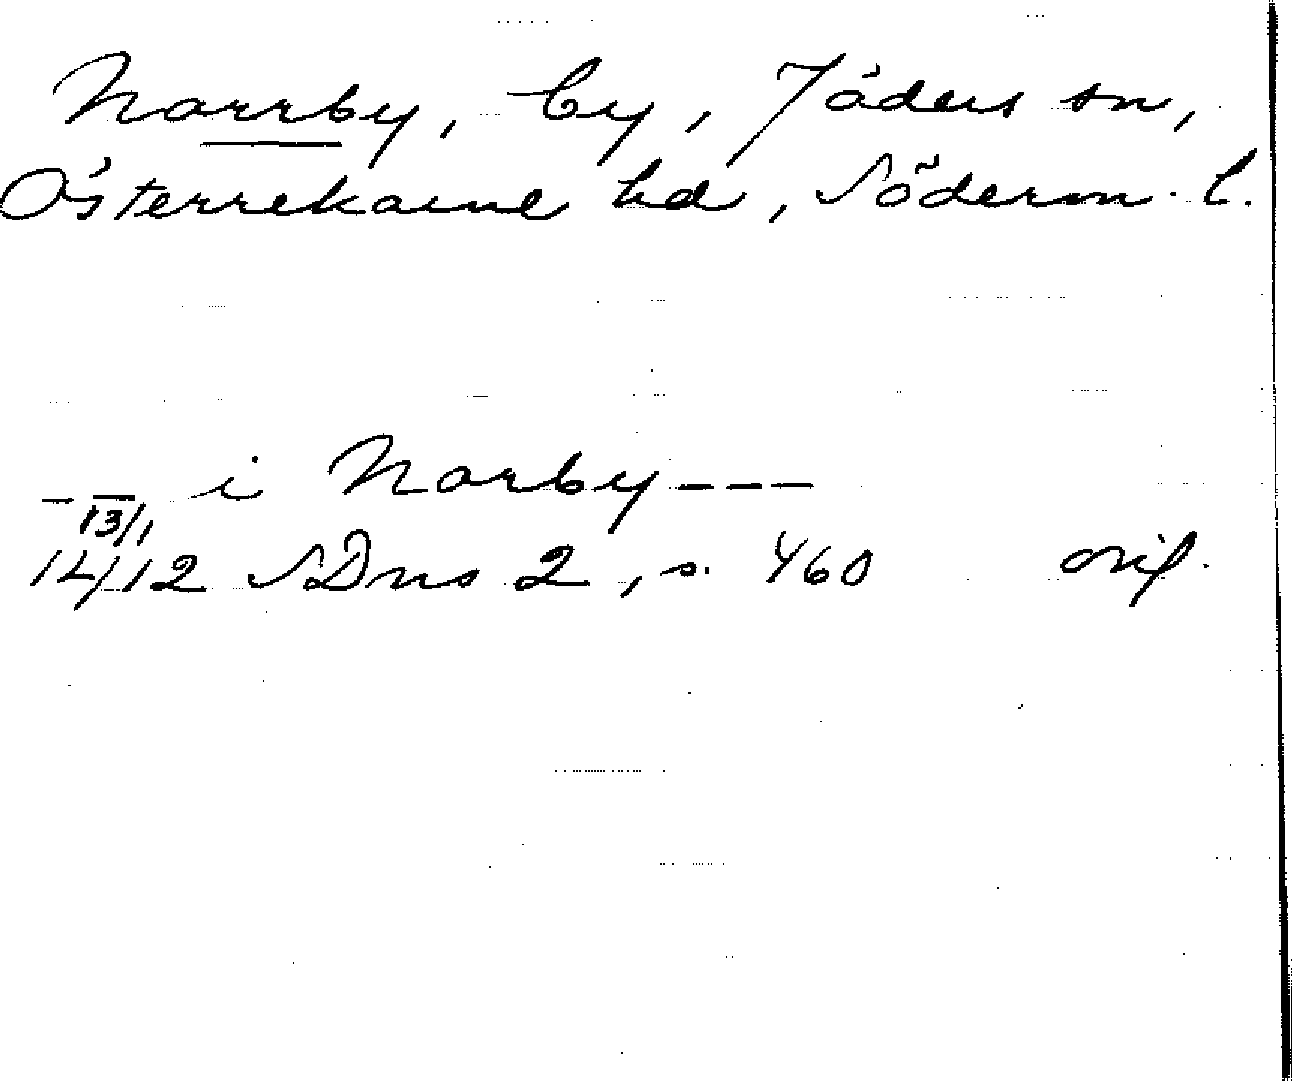 Norrby, by, Jäders sn,
Österrekarne hd, Söderm. l.
— — i Norby - - -
13/1
1412 SDns 2, s. 460 orig.